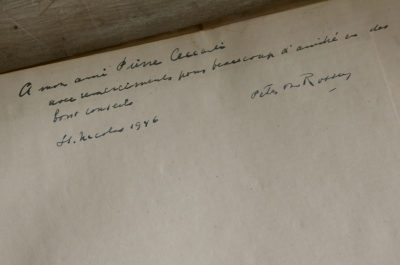 A mon ami Pierre
avec remerciements pour beaucoup d'amitié et des
bons conseils
St. Nicolas 1946
Peter von